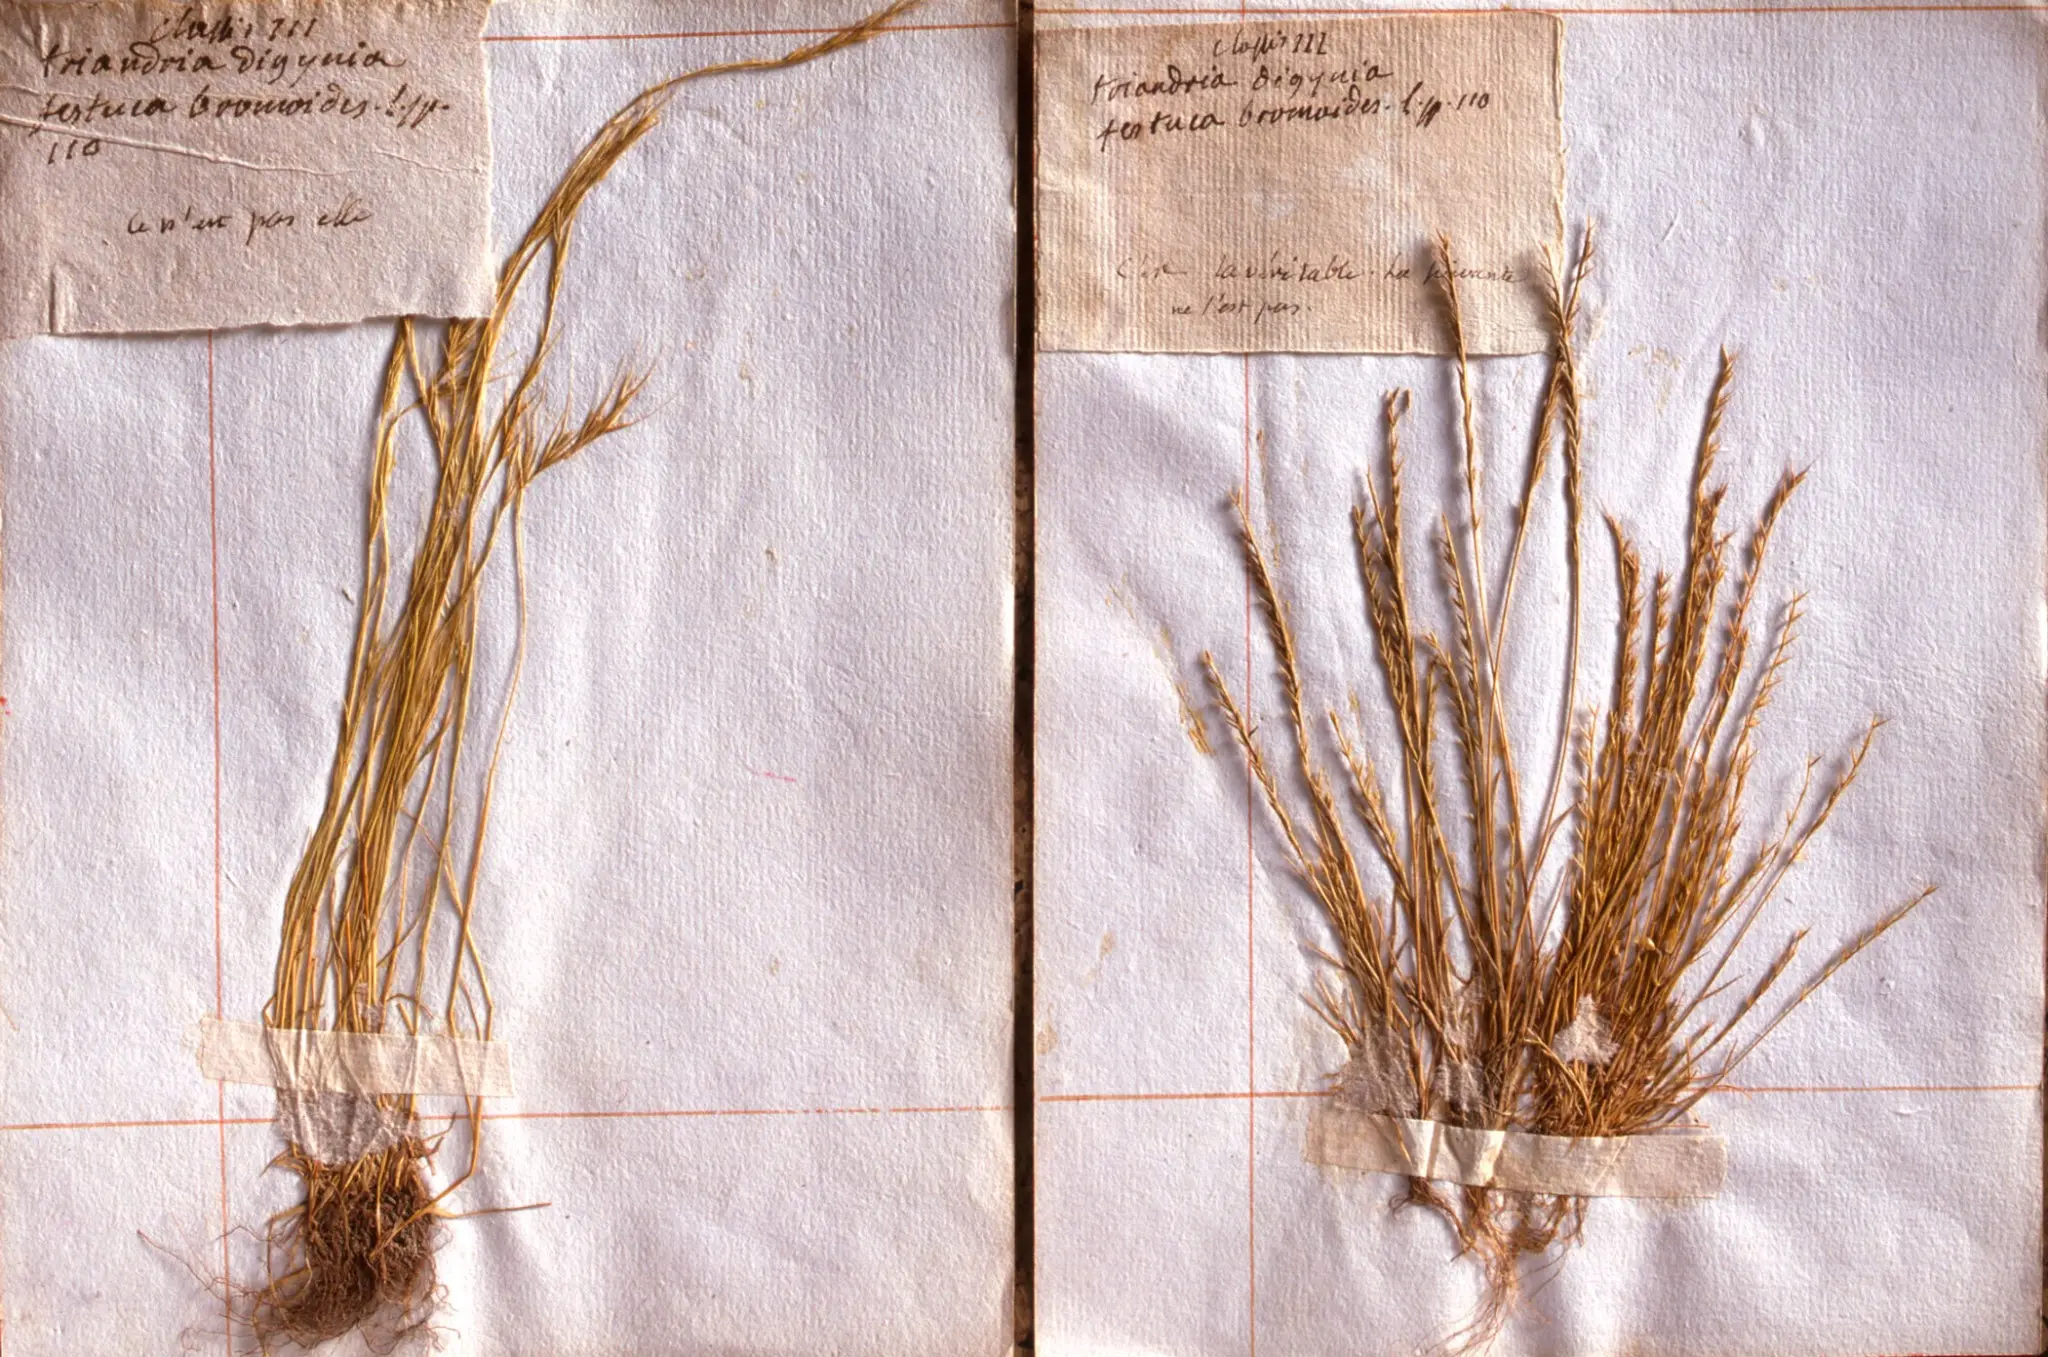 classis III
triandria digynia
festuca bromoides. l. sp.
110
ce n'est pas elle
classis III
triandria digynia
festuca bromoides. l. sp. 110
C'est la véritable. La suivante
ne l'est pas.